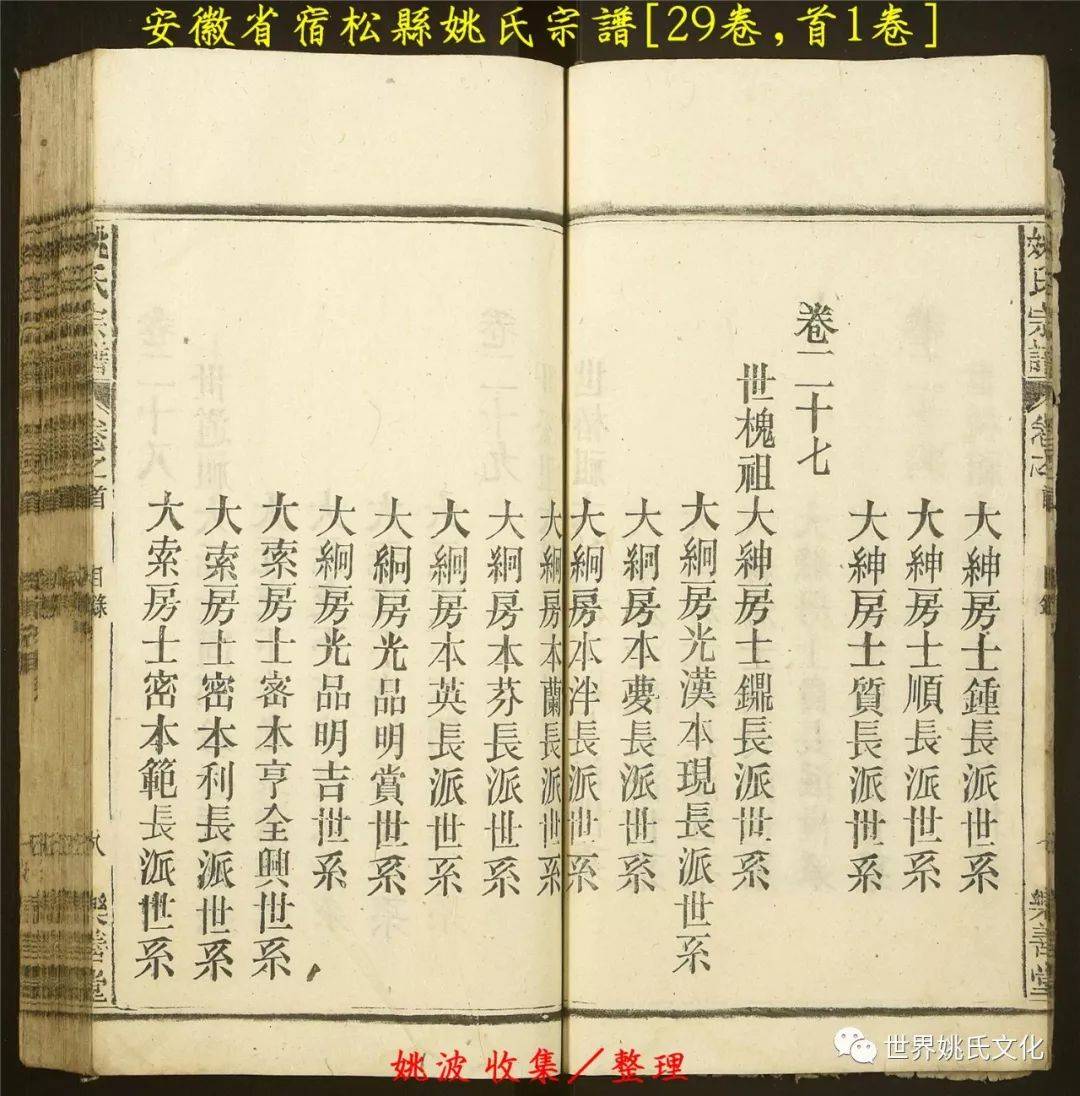 安徽省宿松縣姚氏宗譜[29卷,首1卷]
姚氏宗譜
大紳房士鍾長派世系
大紳房士順長派世系
大紳房士質長派世系
卷二十七
世槐祖
大紳房士鐤長派世系
大絅房光漢本現長派世系
大絅房本夢長派世系
大絅房本泮長派世系
大絅房本蘭長派世系
大絅房本芬長派世系
大絅房本英長派世系
大絅房光品明賞世系
大絅房光品明吉世系
大索房士密本亨全興世系
大索房士密本利長派世系
大索房士密本範長派世系
姚氏宗譜 卷之首 目錄 八 樂善堂
樂善堂
姚波收集/整理
世界姚氏文化